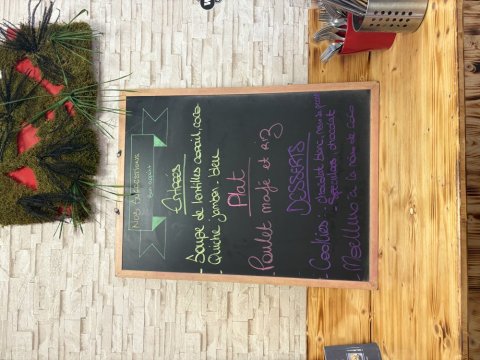 Nos suggestions
bon appétit
Entrées
- Soupe de lentilles corail, coco
- Quiche jambon - bleu
Plat
- Poulet mafé et riz
DESSERTS
- Cookies : chocolat blanc, noix de pécan
- Spéculoos chocolat
- Moelleux à la noix de coco